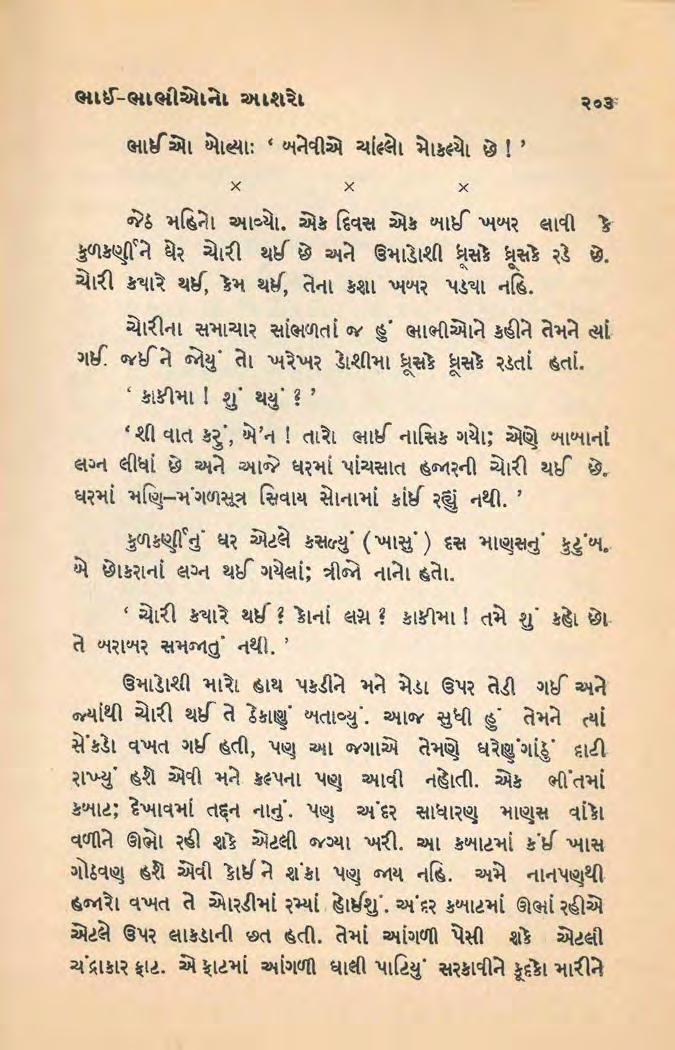 ભાઈ-ભાભીઓનો આશરો ૨૦૩
ભાઈઓ બોલ્યાઃ ‘ બનેવીએ ચાંલ્લો મોકલ્યો છે ! ’
× × ×
જેઠ મહિનો આવ્યો. એક દિવસ એક બાઈ ખબર લાવી કે
કુળકર્ણીને ઘેર ચોરી થઈ છે અને ઉમાડોશી ધ્રૂસકે ધ્રૂસકે રડે છે.
ચોરી ક્યારે થઈ, કેમ થઈ, તેના કશા ખબર પડવા નહિ.
ચોરીના સમાચાર સાંભળતાં જ હું ભાભીઓને કહીને તેમને ત્યાં
ગઈ. જઈને જોયું તો ખરેખર ડોશીમા ધ્રૂસકે ધ્રૂસકે રડતાં હતાં.
‘ કાકીમા ! શું થયું ? ’
‘ શી વાત કરું, બે’ન ! તારો ભાઈ નાસિક ગયો; એણે બાબાનાં
લગ્ન લીધાં છે અને આજે ઘરમાં પાંચસાત હજારની ચોરી થઈ છે.
ઘરમાં મણિ–મંગળસૂત્ર સિવાય સોનામાં કાંઈ રહ્યું નથી. ’
કુળકર્ણીનું ઘર એટલે કસળ્યું ( ખાસું ) દસ માણસનું કુટુંબ.
બે છોકરાનાં લગ્ન થઈ ગયેલાં; ત્રીજો નાનો હતો.
‘ ચોરી ક્યારે થઈ ? કોનાં લગ્ન ? કાકીમા ! તમે શું કહો છો
તે બરાબર સમજાતું નથી. ’
ઉમાડોશી મારો હાથ પકડીને મને મેડા ઉપર તેડી ગઈ અને
જ્યાંથી ચોરી થઈ તે ઠેકાણું બતાવ્યું. આજ સુધી હું તેમને ત્યાં
સેંકડો વખત ગઈ હતી, પણ આ જગાએ તેમણે ઘરેણુંગાંઠું દાટી
રાખ્યું હશે એવી મને કલ્પના પણ આવી નહોતી. એક ભીંતમાં
કબાટ; દેખાવમાં તદ્દન નાનું. પણ અંદર સાધારણ માણસ વાંકો
વળીને ઊભો રહી શકે એટલી જગ્યા ખરી. આ કબાટમાં કંઈ ખાસ
ગોઠવણ હશે એવી કોઈને શંકા પણ જાય નહિ. અમે નાનપણથી
હજારો વખત તે ઓરડીમાં રમ્યાં હોઈશું. અંદર કબાટમાં ઊભાં રહીએ
એટલે ઉપર લાકડાની છત હતી. તેમાં આંગળી પેસી શકે એટલી
ચંદ્રાકાર ફાટ. એ ફાટમાં આંગળી ઘાલી પાટિયું સરકાવીને કૂદકો મારીને